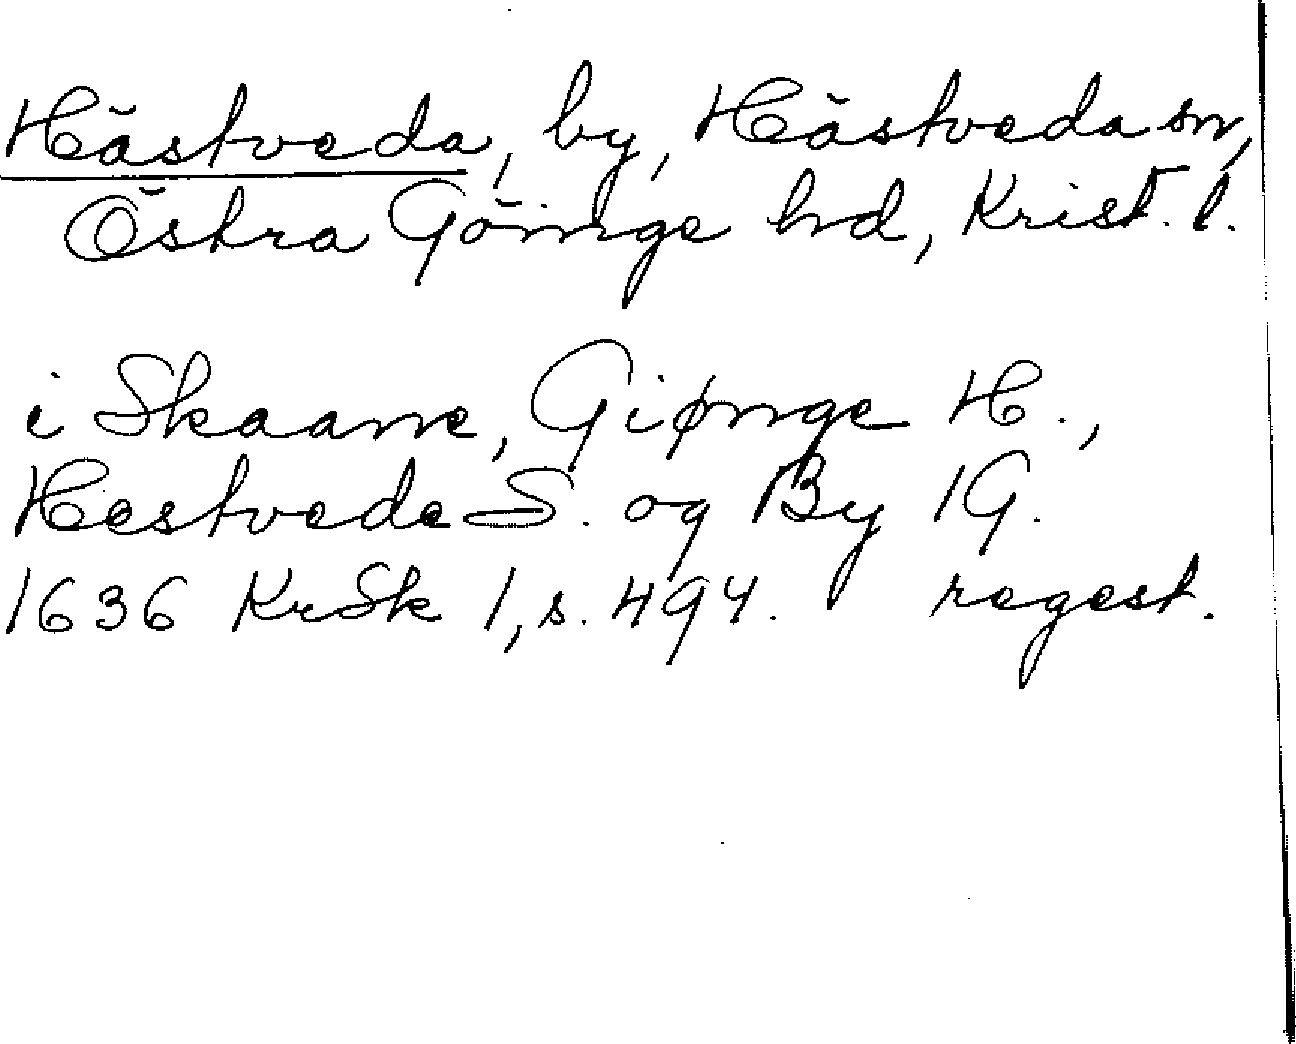 Hästveda, by, Hästveda sn,
Östra Göinge hd, Krist. l.
i Skaane, Giønge H.,
Hestvede S. og By 1G.
1636 KrSk 1, s. 494. regest.